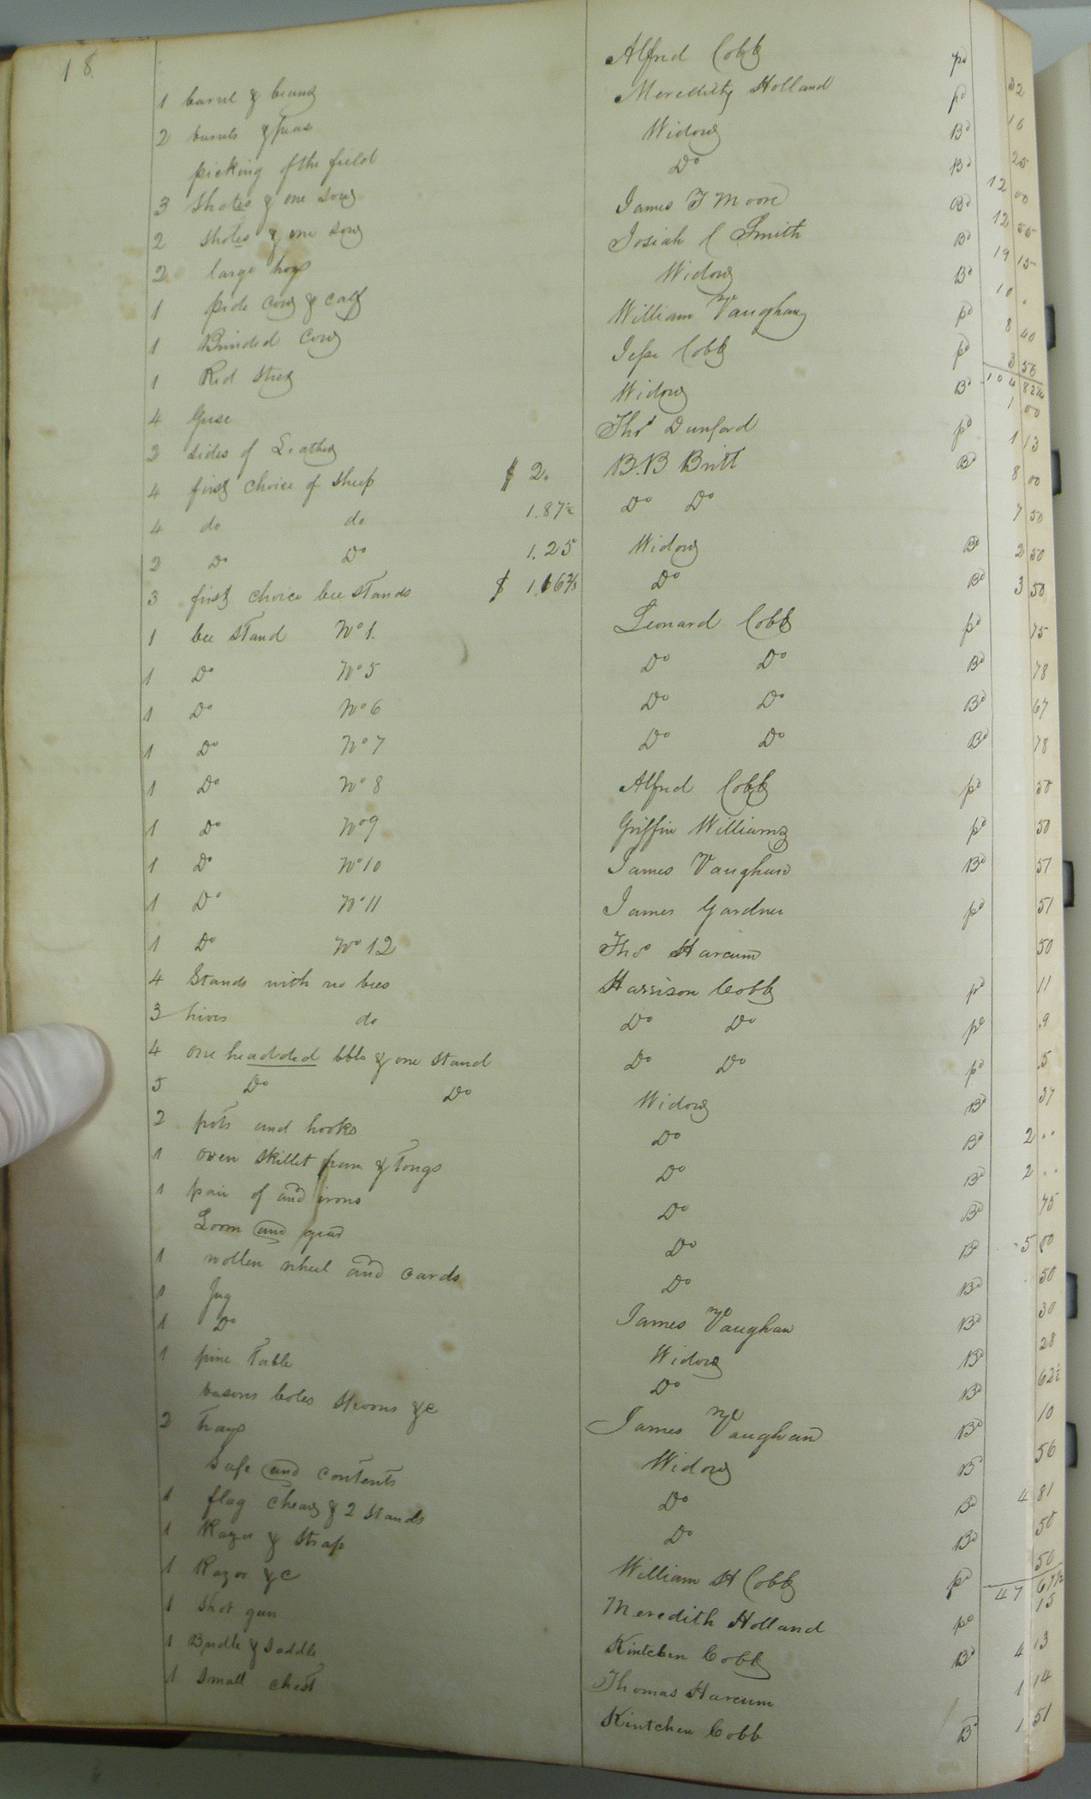 18
1 barrel & beans Alfred Cobb pd 32
2 barrels & peas Meredith Holland pd 16
picking of the field Widow Bd 25
3 Shotes & one sow Do Bd 12 00
2 Shotes & one sow James T Moore Bd 12
2 large hogs Josiah C Smith Bd 19 15
1 pide cow & calf Widow Bd 10 .
1 Brinded Cow William Vaughan pd 8 40
1 Red Steer Jesse Cobb pd 3 50
104 82½
4 Geese Widow Bd 1 00
2 sides of Leather Thos Dunford pd 1 13
4 first choice of Sheep $ 2. B.B Britt Bd 8 00
4 do do 1.87½ Do Do 7 50
2 Do Do 1.25 Widow Bd 2 50
3 first choice bee stands $ 1.16⅔ Do Bd 3 50
1 bee stand No 1. Leonard Cobb pd 75
1 Do No 5 Do Do Bd 78
1 Do No 6 Do Do Bd 67
1 Do No 7 Do Do Bd 78
1 Do No 8 Alfred Cobb pd 50
1 Do No 9 Griffin Williams pd 50
1 Do No 10 James Vaughan Bd 51
1 Do No 11 James Gardner pd 51
1 Do No 12 Thos Harcum 50
4 Stands with no bees Harrison Cobb pd 11
3 hives do Do Do pd .9
4 one headded bbls & one Stand Do Do pd .5
5 Do Do Widow Bd 37
2 pots and hooks Do Bd 2 ..
1 oven Skillet pan & Tongs Do Bd 2 ..
1 pair of and irons Do Bd 75
Loom and gear Do Bd 5 00
1 wollen wheel and cards Do Bd 50
1 Jug James Vaughan Bd 30
1 Do Widow Bd 28
1 pine Table Do Bd 62½
basons boles Spoons &c James Vaughan Bd 10
2 Trays Widow Bd 56
Safe and contents Do Bd 4 81
1 flag chears & 2 Stands Do Bd 50
1 Razor & Strap William H Cobb pd 50
47 67½
1 Razor &c Meredith Holland pd 15
1 Shot gun Kintchen Cobb Bd 4 13
1 Bridle & Saddle Thomas Harcum 1 14
1 Small chest Kintchen Cobb Bd 1 51